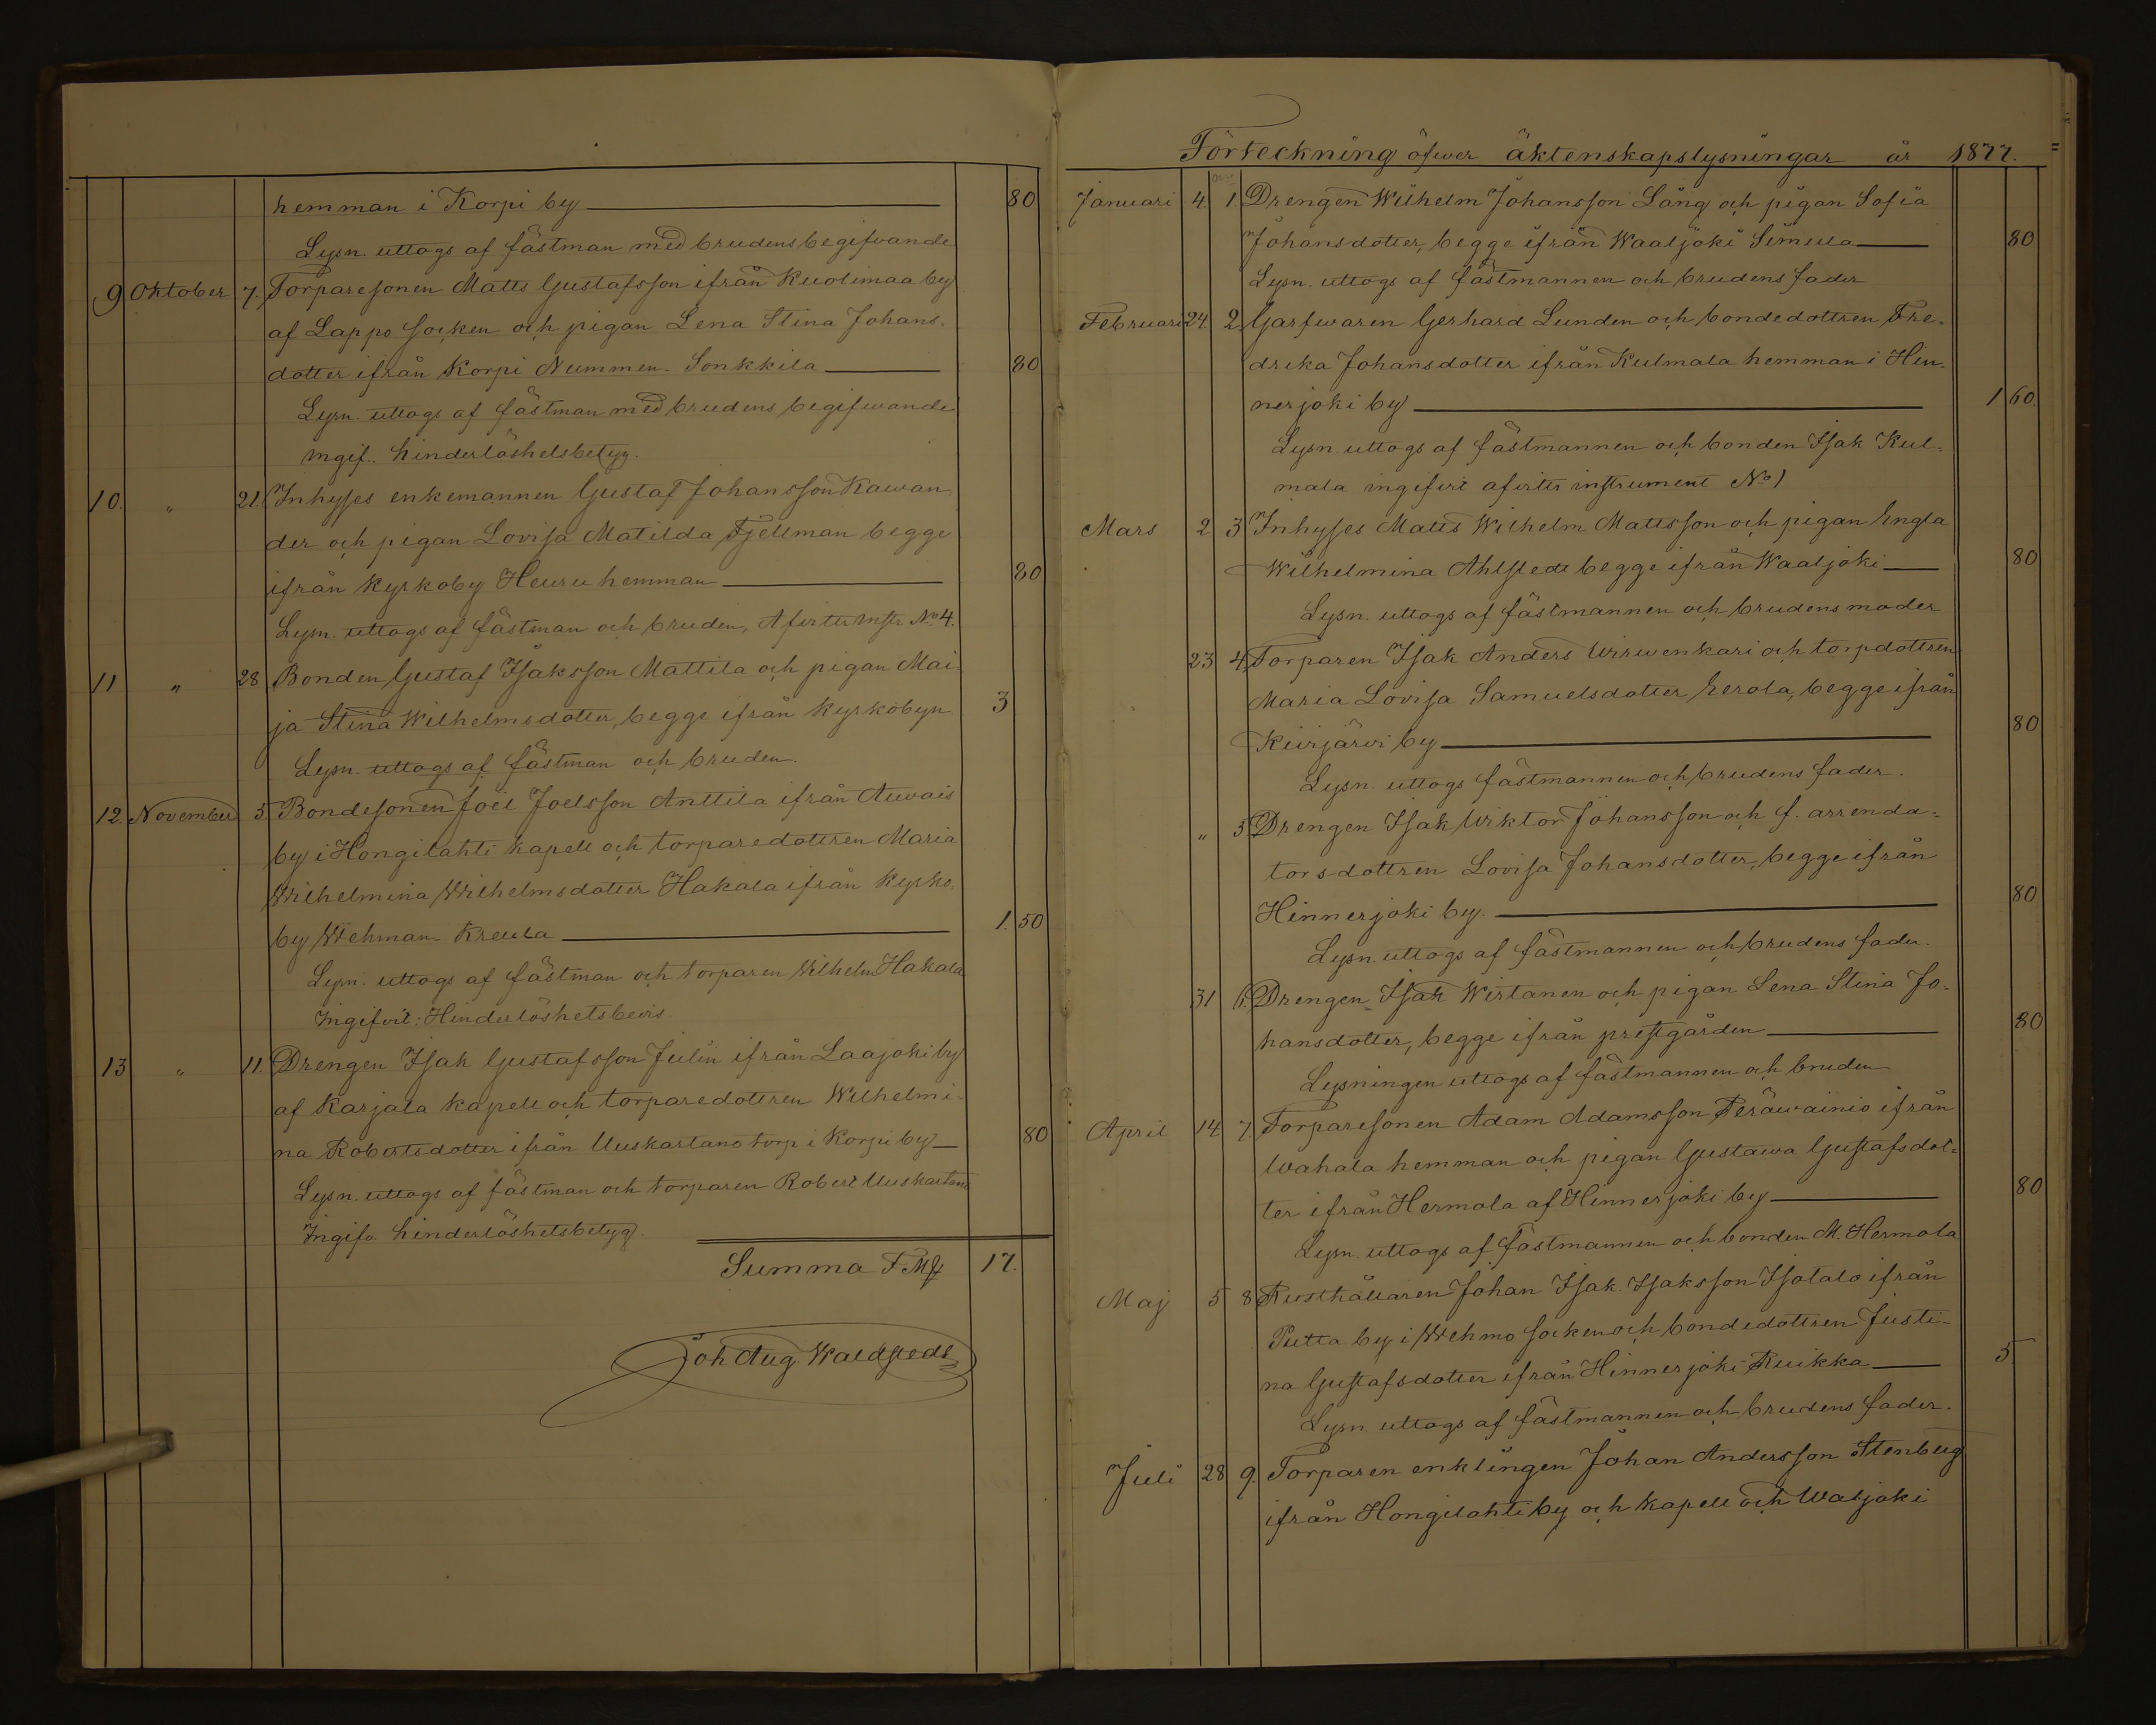 hemman i Korpi by 80
Lysn. uttogs af fästman med brudens begifwande
9 Oktober 7. Torparesonen Matts Gustafsson ifrån Kuolimaa by
af Lappo socken och pigan Lena Stina Johans-
dotter ifrån Korpi Nummen-Sonkkila 80
Lysn. uttogs af fästman med brudens begifwande
ingif. hinderlöshetsbetyg.
10. " 21. Inhyses enkemannen Gustaf Johansson Kawan-
der och pigan Lovisa Matilda Fjellman begge
ifrån Kyrkoby Heuru hemman 80
Lysn. uttogs af fästman och bruden, Afvittr instr No 4.
11 " 28 Bonden Gustaf Isaksson Mattila och pigan Mai-
ja Stina Wilhelmsdotter, begge ifrån Kyrkobyn 3
Lysn. uttogs af fästman och bruden.
12. November 5 Bondesonen Joel Joelsson Anttila ifrån Auvais
by i Hongilahti kapell och torparedottren Maria
Wilhelmina Wilhelmsdotter Hakala ifrån Kyrko-
by Wehman-Kreula 1. 50
Lysn. uttogs af fästman och torparen Wilhelm Hakala
Ingifvit: Hinderlöshetsbevis.
13 " 11. Drengen Isak Gustafsson Julin ifrån Laajoki by
af Karjala kapell och torparedottren Wilhelmi-
na Robertsdotter ifrån Uuskartano torp i Korpi by 80
Lysn. uttogs af fästman och torparen Robert Uuskartano
Ingifv. hinderlöshetsbetyg.
Summa FMk 17.
Joh Aug. Waldstedt
Förteckning öfwer äktenskapslysningar år 1877.
Januari 4. 1. Drengen Wilhelm Johansson Lång och pigan Sofia
Johansdotter, begge ifrån Waaljoki Simula 80
Lysn. uttogs af fästmannen och brudens fader
Februari 24. 2 Garfwaren Gerhard Lunden och bondedottren Fre-
drika Johansdotter ifrån Kulmala hemman i Hin-
nerjoki by 1 60.
Lysn. uttogs af fästmannen och bonden Isak Kul-
mala ingifvit afvittr instrument No 1
Mars 2 3 Inhyses Matts Wilhelm Mattsson och pigan Engla
Wilhelmina Ahlstedt begge ifrån Waaljoki 80
Lysn. uttogs af fästmannen och brudens moder
23 4. Torparen Isak Anders Wirwenkari och torpdottren
Maria Lovisa Samuelsdotter Eerola, begge ifrån
Kiirjärvi by 80
Lysn. uttogs fästmannen och brudens fader.
" 5. Drengen Isak Wiktor Johansson och f. arrenda-
torsdottren Lovisa Johansdotter, begge ifrån
Hinnerjoki by. 80
Lysn. uttogs af fästmannen och brudens fader.
31 6. Drengen Isak Wirtanen och pigan Lena Stina Jo-
hansdotter, begge ifrån prestgården 80
Lysningen uttogs af fästmannen och bruden
April 14 7. Torparesonen Adam Adamsson Peräwainio ifrån
Wahala hemman och pigan Gustawa Gustafsdot-
ter ifrån Hermola af Hinnerjoki by 80
Lysn. uttogs af fästmannen och bonden M. Hermola
Maj 5 8 Rusthållaren Johan Isak Isaksson Isotalo ifrån
Putta by i Wehmo socken och bondedottren Justi-
na Gustafsdotter ifrån Hinnerjoki Ruikka 5.
Lysn. uttogs af fästmannen och brudens fader.
Juli 28 9. Torparen enklingen Johan Andersson Stenberg
ifrån Hongilahti by och kapell och Waljoki